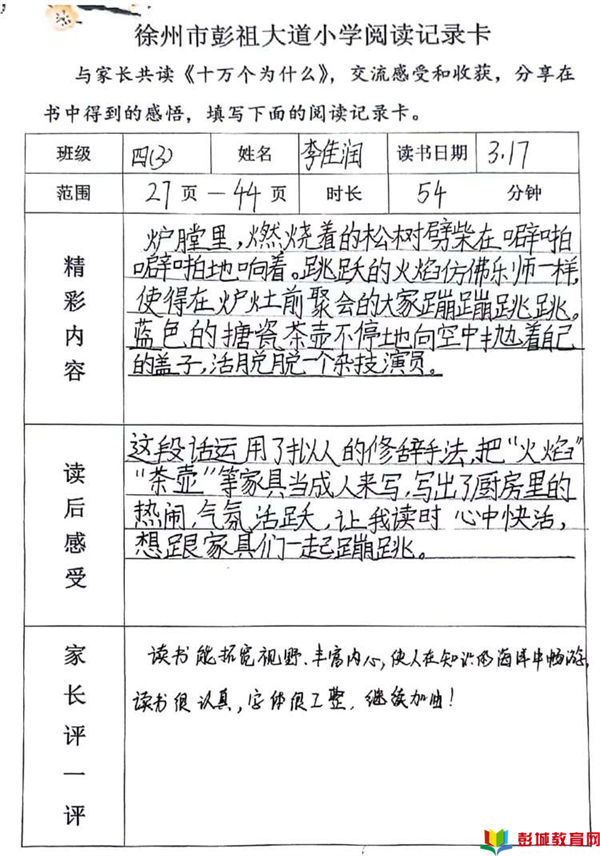 徐州市彭祖大道小学阅读记录卡
与家长共读《十万个为什么》，交流感受和收获，分享在
书中得到的感悟，填写下面的阅读记录卡。
班级 四(3) 姓名 李佳润 读书日期 3.17
范围 27页—44页 时长 54 分钟
精彩内容
炉膛里，燃烧着的松树劈柴在噼啪
噼啪地响着。跳跃的火焰仿佛乐师一样，
使得在炉灶前聚会的大家蹦蹦跳跳。
蓝色的搪瓷茶壶不停地向空中抛着自己
的盖子，活脱脱一个杂技演员。
读后感受
这段话运用了拟人的修辞手法，把“火焰”
“茶壶”等家具当成人来写，写出了厨房里的
热闹，气氛活跃，让我读时心中快活，
想跟家具们一起蹦跳。
家长评一评
读书能拓宽视野、丰富内心，使人在知识的海洋中畅游，
读书很认真，字体很工整，继续加油！
彭城教育网